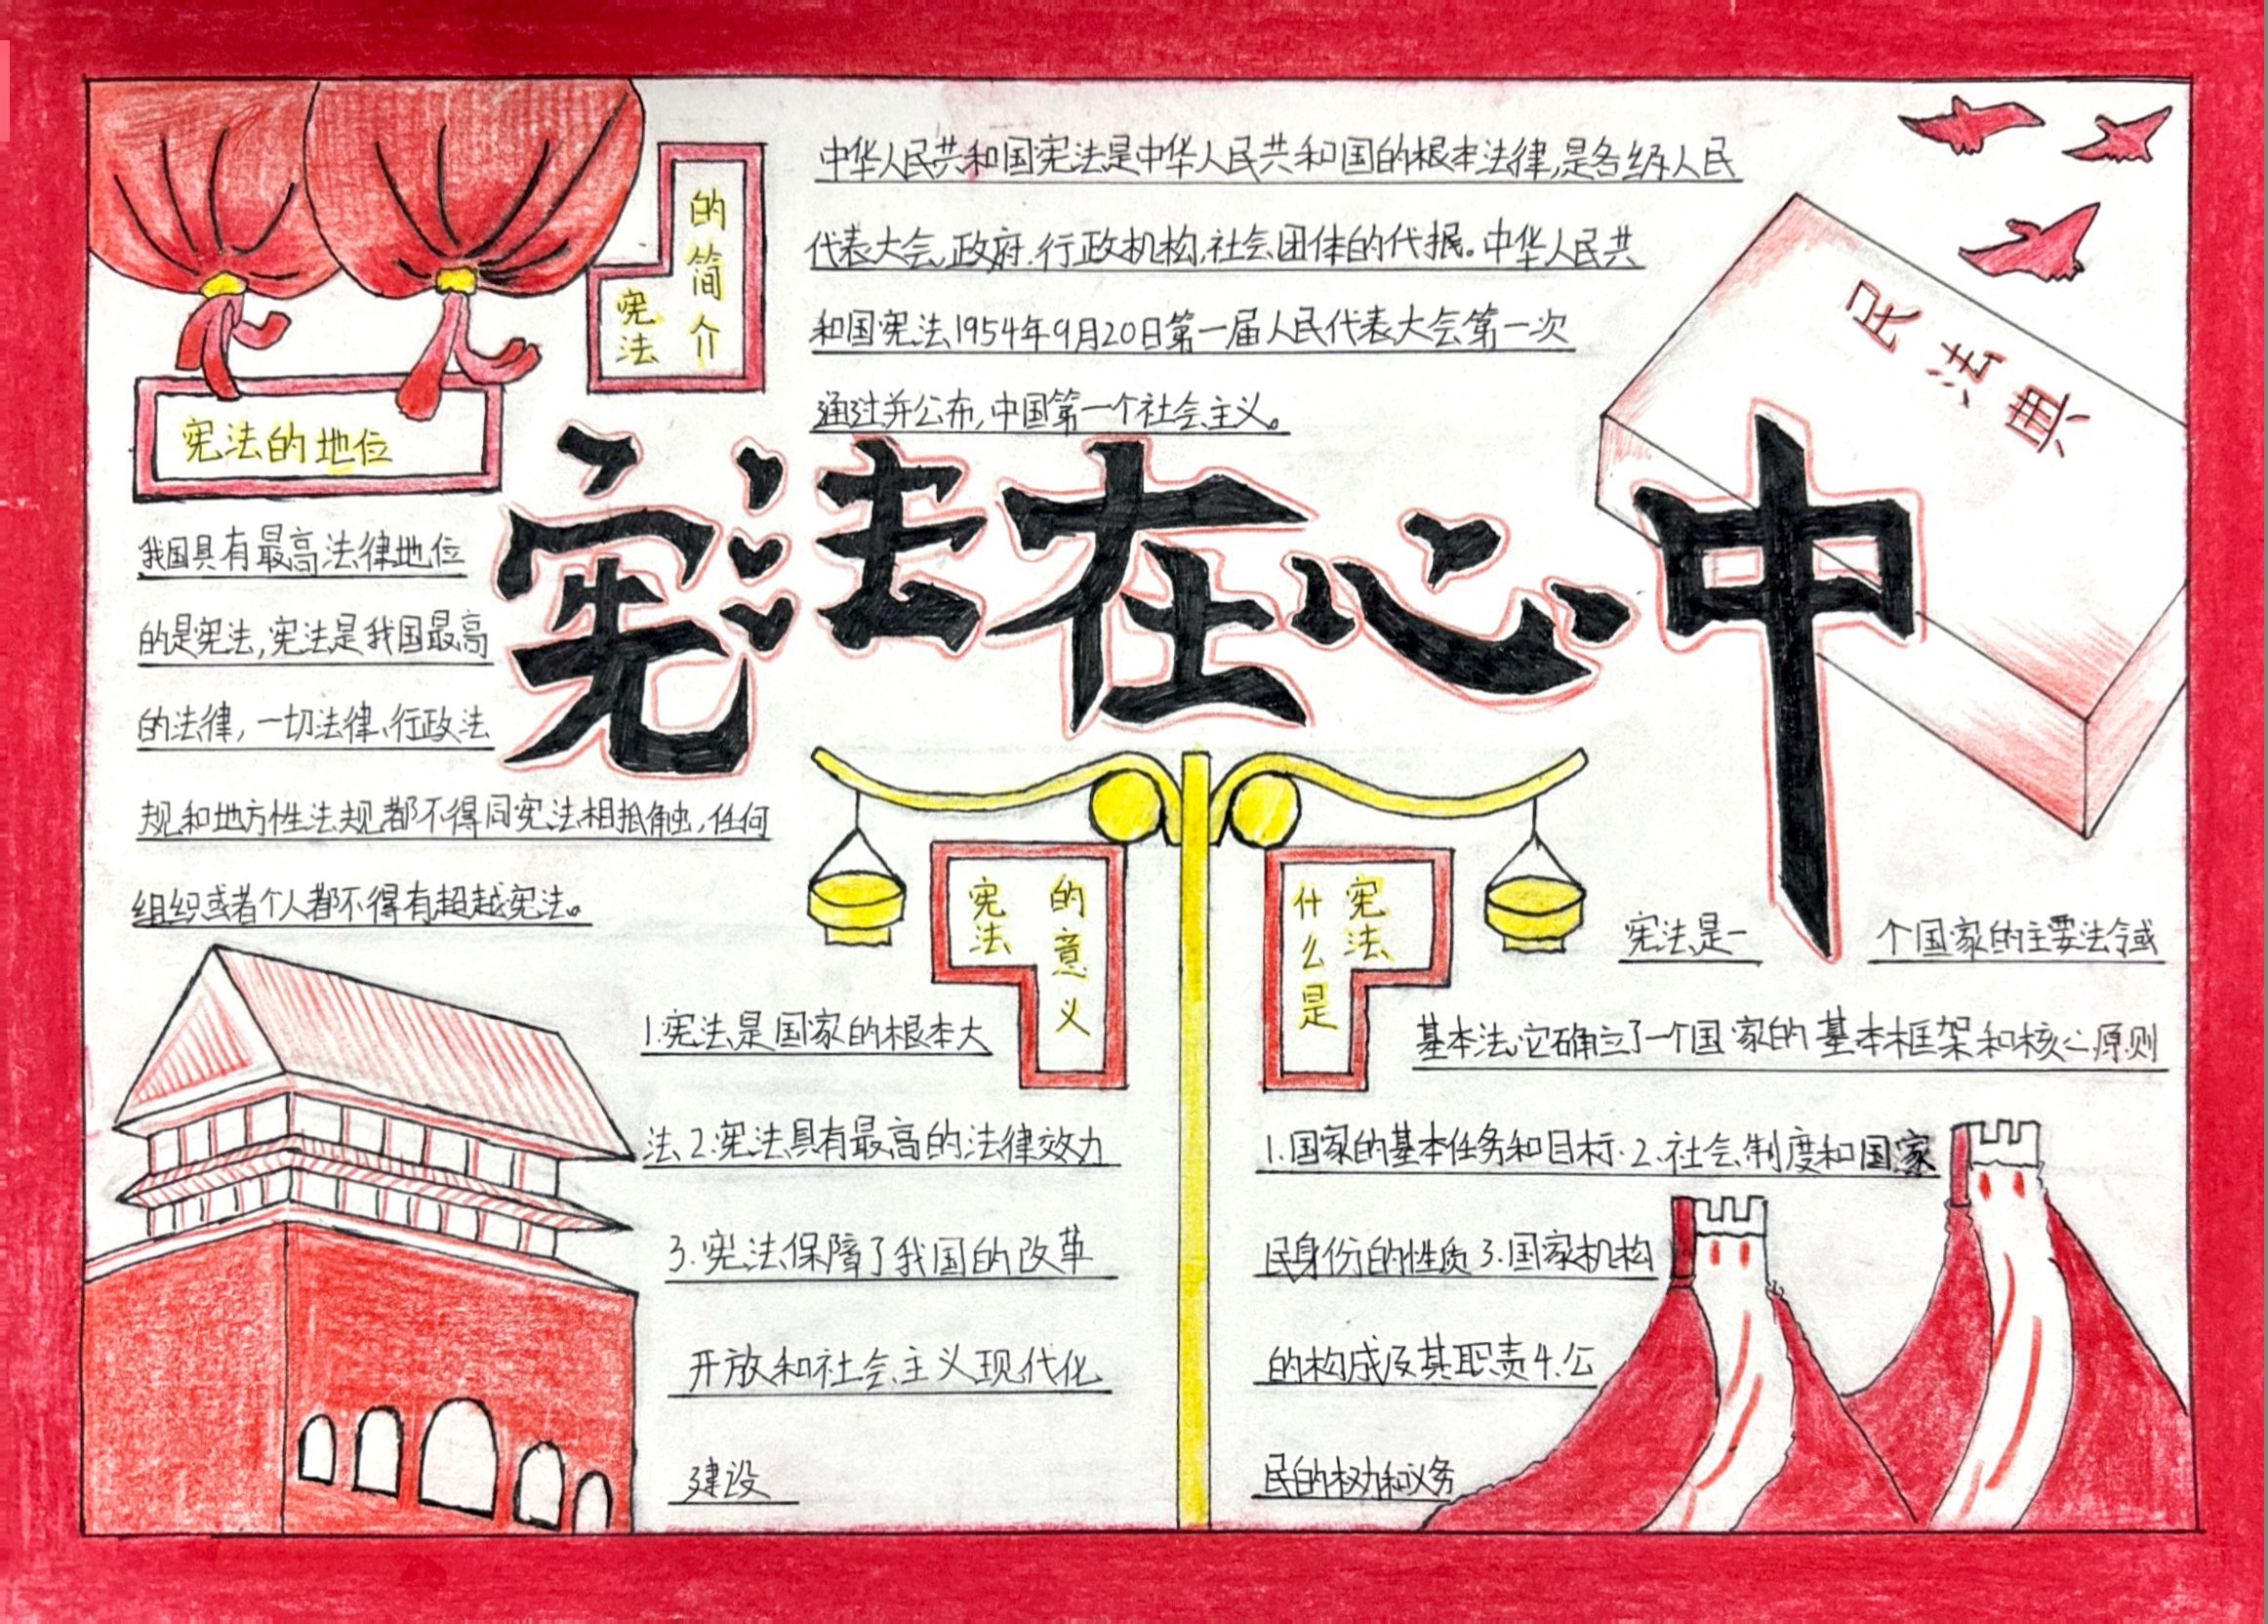 宪法的简介
中华人民共和国宪法是中华人民共和国的根本法律,是各级人民
代表大会、政府、行政机构、社会团体的代据。中华人民共
和国宪法1954年9月20日第一届人民代表大会第一次
通过并公布,中国第一个社会主义。
民法典
宪法在心中
宪法的地位
我国具有最高法律地位
的是宪法,宪法是我国最高
的法律,一切法律、行政法
规和地方性法规都不得同宪法相抵触,任何
组织或者个人都不得有超越宪法。
宪法的意义
1.宪法是国家的根本大
法 2.宪法具有最高的法律效力
3.宪法保障了我国的改革
开放和社会主义现代化
建设
什么是宪法
宪法是一个国家的主要法令或
基本法,它确立了一个国家的基本框架和核心原则
1.国家的基本任务和目标.2.社会制度和国家
民身份的性质 3.国家机构
的构成及其职责4.公
民的权力和义务